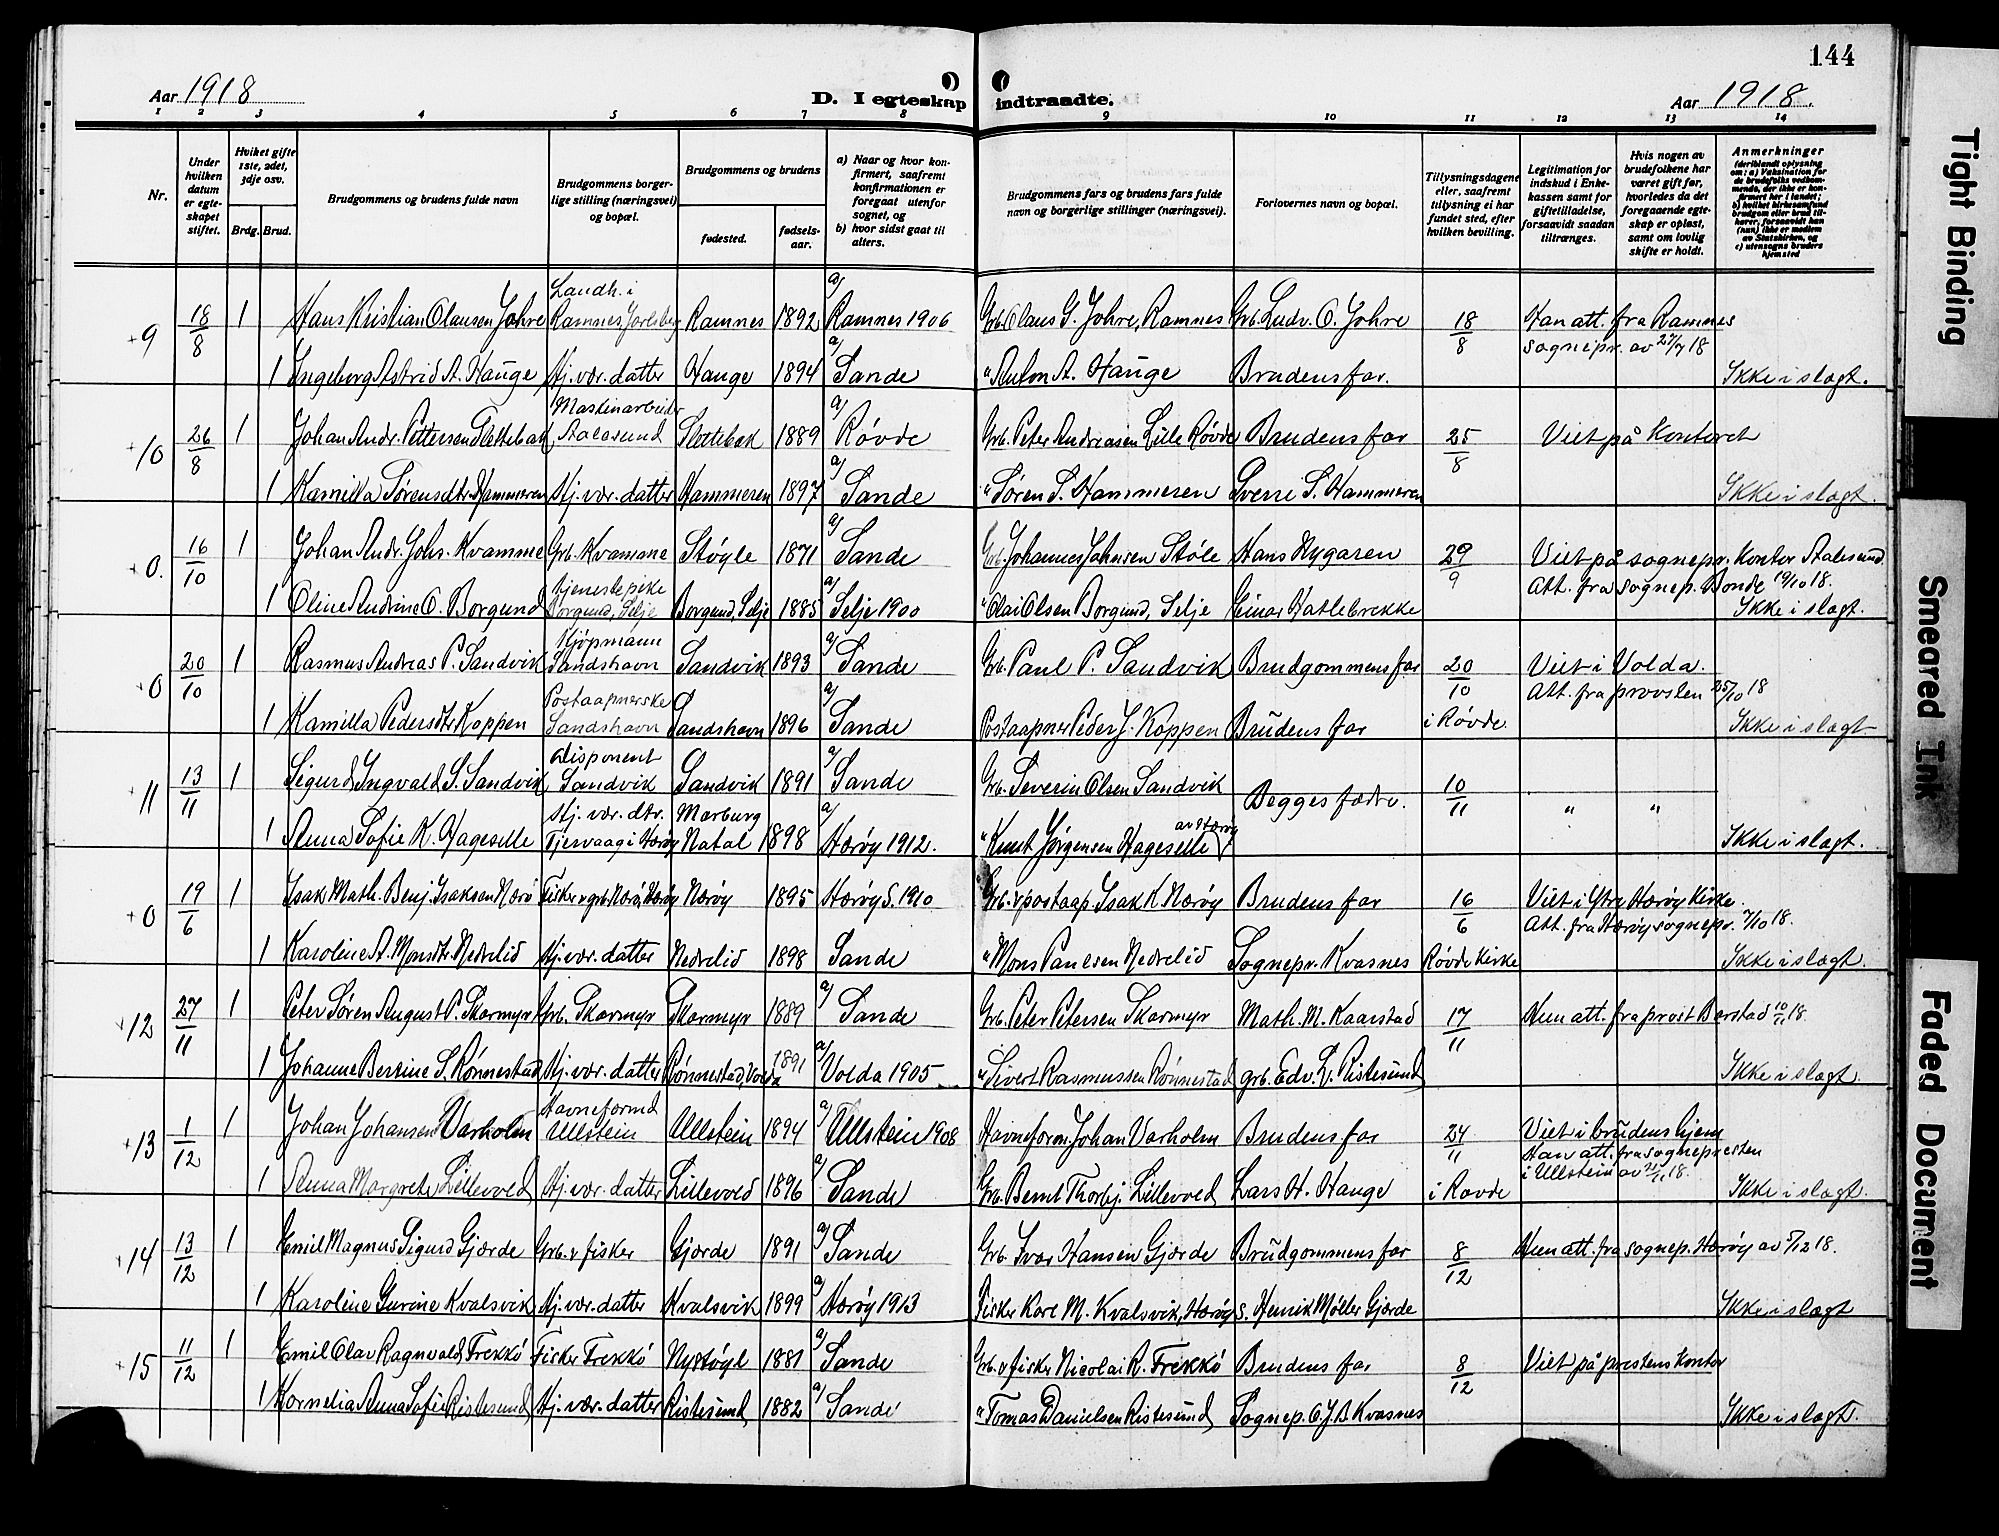 144
Aar 1918
D. I egteskap indtraadte.
Aar 1918.
1 2 3 4 5 6 7 8 9 10 11 12 13 14
Nr.
Under hvilken datum er egteskapet stiftet.
Hvilket gifte 1ste, 2det, 3dje osv.
Brdg. Brud.
Brudgommens og brudens fulde navn
Brudgommens borgerlige stilling (næringsvei) og bopæl.
Brudgommens og brudens
fødested.
fødselsaar.
a) Naar og hvor konfirmert, saafremt konfirmationen er foregaat utenfor sognet, og
b) hvor sidst gaat til alters.
Brudgommens fars og brudens fars fulde navn og borgerlige stillinger (næringsvei).
Forlovernes navn og bopæl.
Tillysningsdagene eller, saafremt tillysning ei har fundet sted, efter hvilken bevilling.
Legitimation for indskud i Enkekassen samt for giftetilladelse, forsaavidt saadan tiltrænges.
Hvis nogen av brudefolkene har været gift før, hvorledes da det foregaaende egteskap er opløst, samt om lovlig skifte er holdt.
Anmerkninger (deriblandt oplysning om: a) Vaksination for de brudefolks vedkommende, der ikke er konfirmert her i landet; b) hvilket kirkesamfund brudgom eller brud tilhører, forsaavidt han (hun) ikke er medlem av Statskirken, og c) utensogns bruders hjemsted
+9 18/8 1 Hans Kristian Olausen Johre Landh. i Ramnes, Jarlsberg Ramnes 1892 a) Ramnes 1906 Grb. Olaus G. Johre, Ramnes Grb. Ludv. O. Johre 18/8 Han att. fra Ramnes sognepr. av 27/7 18
1 Ingeborg Astrid A. Hauge Hj. vær. datter Hauge 1894 a) Sande " Anton A. Hauge Brudens far. Ikke i slægt.
+10 26/8 1 Johan Andr. Pettersen Slettebak Maskinarbeider Aalesund Slettebak 1889 a) Røvde Grb. Peter Andreasen Lille Røvde Brudens far 25/8 Viet på kontoret
1 Kamilla Sørensdtr. Hammeren Hj. vær. datter Hammeren 1897 a) Sande " Søren S. Hammeren Sverre S. Hammeren Ikke i slægt.
+0. 16/10 1 Johan Andr. Johs. Kvamme Grb. Kvamme Støyle 1871 a) Sande Grb. Johannes Johnsen Støle Hans Nygaren 29/9 Viet på sognepr. kontor Aalesund. Att. fra sognep. Bonde 19/10 18.
1 Oline Andrine O. Borgund tjenestepike Borgund, Selje Borgund, Selje 1885 a) Selje 1900 " Olai Olsen Borgund, Selje Einar Hatlebrekke Ikke i slægt.
+0 20/10 1 Rasmus Andreas P. Sandvik Kjøpmann Sandshavn Sandvik 1893 a) Sande Grb. Paul P. Sandvik Brudgommens far 20/10 Viet i Volda. Att. fra provsten 25/10 18
1 Kamilla Pedersdtr. Koppen Postaapnerske Sandshavn Sandshavn 1896 a) Sande Postaapner Peder J. Koppen Brudens far i Røvde Ikke i slægt
+11 13/11 1 Sigurd Ingvald S. Sandvik Disponent Sandvik Sandvik 1891 a) Sande Grb. Severin Olsen Sandvik Begges fædre. 10/11 " "
1 Anna Sofie K. Hageselle Hj. vær. dtr. Tjervaag i Herøy Marburg Natal 1898 a) Herøy 1912. " Knut Jørgensen Hageselle av Herøy Ikke i slægt.
+0 19/6 1 Isak Math. Benj. Isaksen Nærø Fisker v grb. Nærø, Herøy Nerøy 1895 Herøy S. 1910 Grb. v postaap. Isak K. Nerøy Brudens far 16/6 Viet i Ytre Herøy kirke. Att. fra Herøy sognepr. 7/10 18.
1 Karoline A. Monsdtr. Nedrelid Hj. vær. datter Nedrelid 1898 Sande " Mons Paulsen Nedrelid Sognepr. Kvasnes Røvde kirke Ikke i slægt.
+12 27/11 1 Peter Søren August P. Skarmyr Grb. Skarmyr Skarmyr 1889 a) Sande Grb. Peter Petersen Skarmyr Math. M. Kaarstad 17/11 Hun att. fra prost Barstad 10/11 18.
1 Johanne Bertine S. Rønnestad Hj. vær. datter Rønnestad, Volda 1891 a) Volda 1905 " Sivert Rasmussen Rønnestad grb. Edv. L. Ristesund Ikke i slægt.
+13 1/12 1 Johan Johansen Varholm Havneformd Ullstein Ullstein 1894 a) Ullstein 1908 Havneform. Johan Varholm Brudens far 24/11 Viet i brudens hjem Han att. fra sognepresten i Ullstein av 21/11 18.
1 Anna Margrete Lillevold Hj. vær. datter Lillevold 1896 a) Sande Grb. Bernt Thorbj. Lillevold Lars H. Hauge i Røvde Ikke i slægt.
+14 13/12 1 Emil Magnus Sigurd Gjærde Grb. v fisker Gjerde 1891 a) Sande Grb. Ivar Hansen Gjærde Brudgommens far 8/12 Hun att. fra sognep. Herøy av 5/12 18.
1 Karoline Gurine Kvalsvik Hj. vær. datter Kvalsvik 1899 a) Herøy 1913 Fisker Karl M. Kvalsvik, Herøy s. Henrik Møller Gjærde Ikke i slægt
+15 11/12 1 Emil Olav Ragnvald Frekkø Fisker Frekkø Nystøyl 1881 a) Sande Grb. v fisker Nicolai R. Frekkø Brudens far 8/12 Viet på prestens kontor
1 Kornelia Anna Sofie Ristesund Hj. vær. datter Ristesund 1882 a) Sande " Tomas Danielsen Ristesund Sognep. O J B Kvasnes Ikke i slægt.
Tight Binding
Smeared Ink
Faded Document